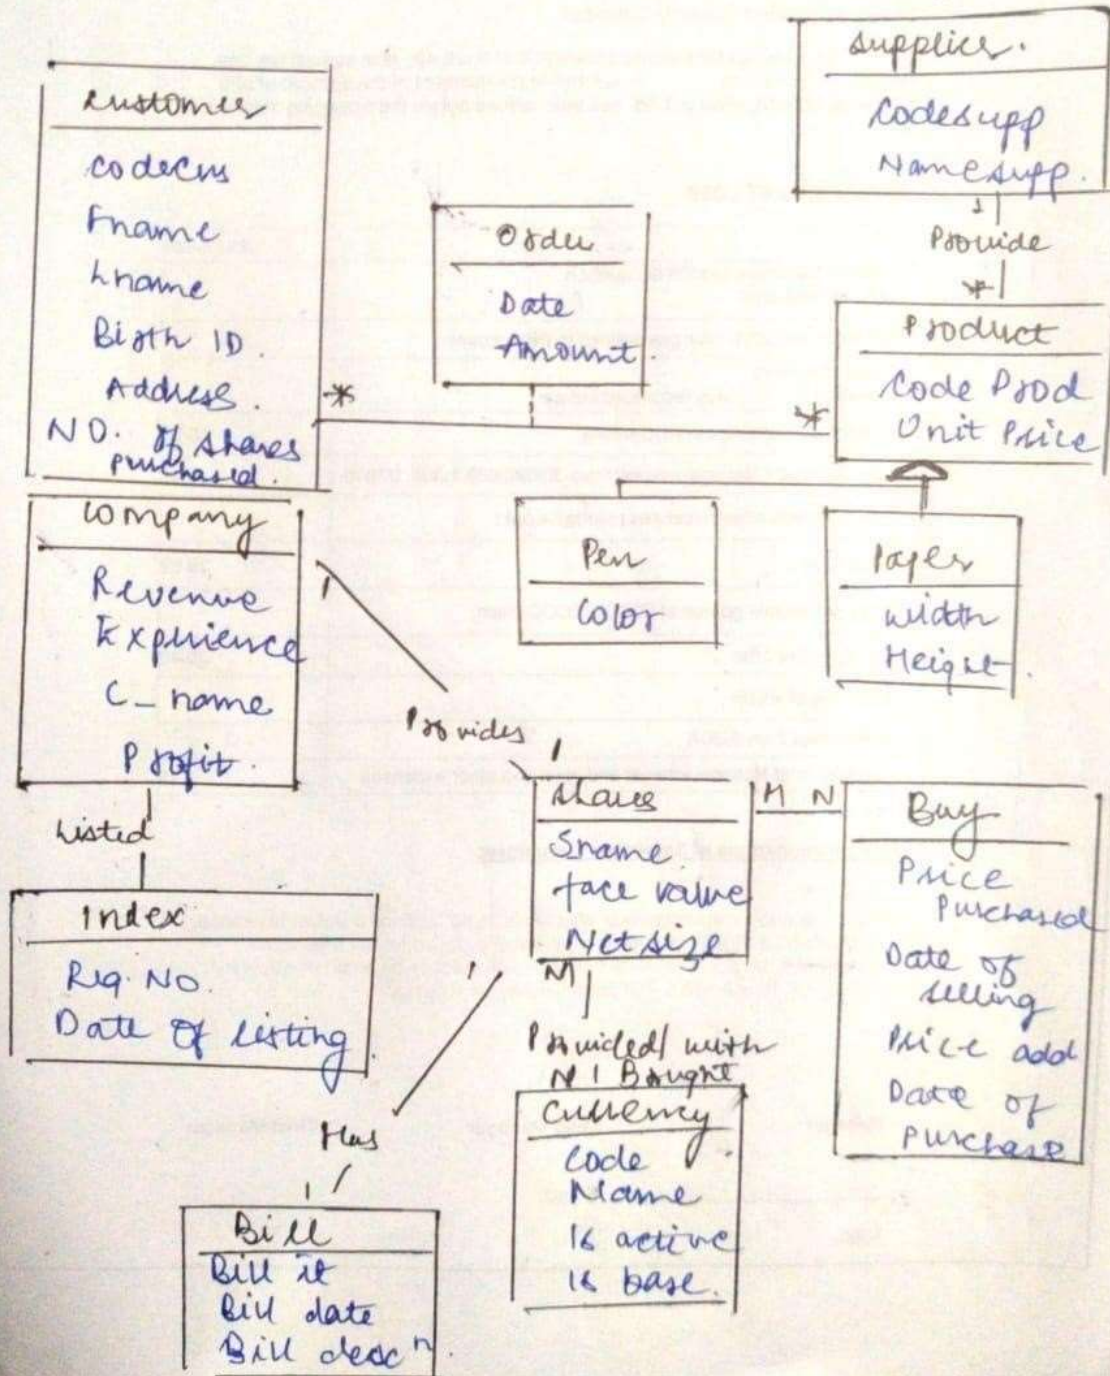 Supplier.
Codesupp
Namesupp.
1
Provide
*
Customer
CodeCus
Fname
Lname
Birth ID.
Address.
NO. of shares
purchased.
*
Order
Date
Amount.
*
Product
Code Prod
Unit Price
Pen
Color
Paper
width
Height.
Company
Revenue
Experience
C_name
Profit.
1
Provides
1
Listed
Index
Reg. No.
Date of listing.
Shares
Sname
face value
Net size
M N
Buy
Price
Purchased
Date of
selling
Price add
Date of
purchase
M
Provided/ with
N | Bought
Currency
Code
Name
Is active
Is base.
1
Has
1
Bill
Bill it
Bill date
Bill descn.